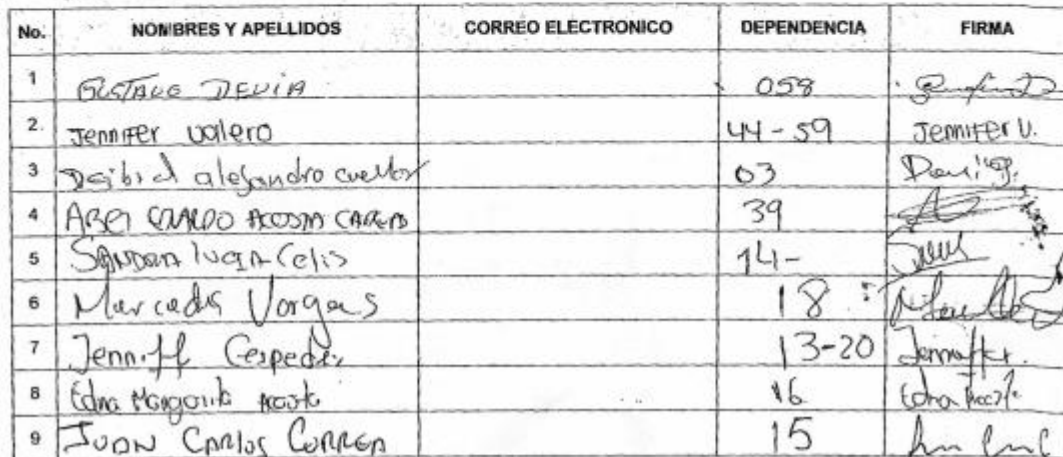 No. NOMBRES Y APELLIDOS CORREO ELECTRONICO DEPENDENCIA FIRMA
1 GUSTAVO DEVIA 058
2. Jennifer valero 44-59 Jennifer V.
3 Deibid alejandro cuellar 03
4 ABEL ACOSTA 39
5 SANDRA LUCIA Celis 14-
6 Mercedes Vargas 18
7 Jenniff Cespedes 13-20 Jenniffer.
8 Edna Margarita Acosta 16 Edna Acosta
9 JUAN CARLOS CORREA 15